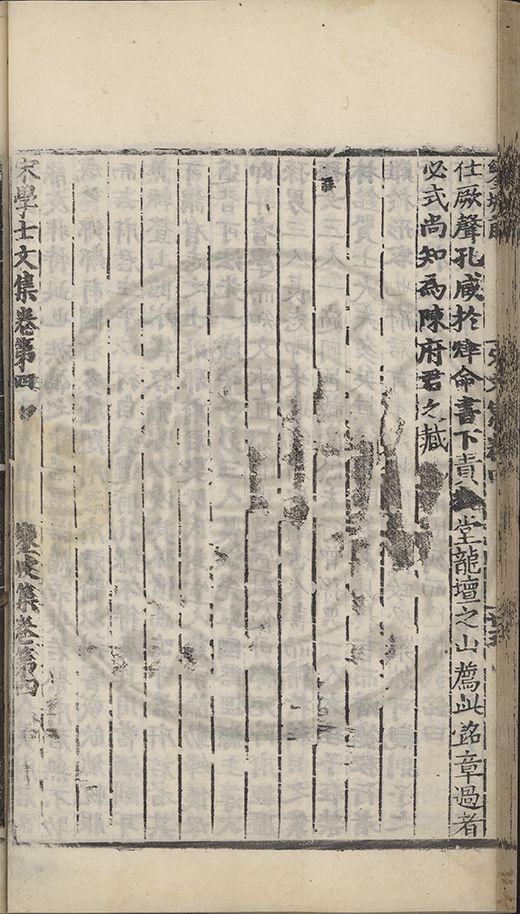 仕厥聲孔咸於肆命書下責 堂龍壇之山薦此銘章過者
必式尚知為陳府君之藏
宋學士文集卷第四 鑾坡集卷第四